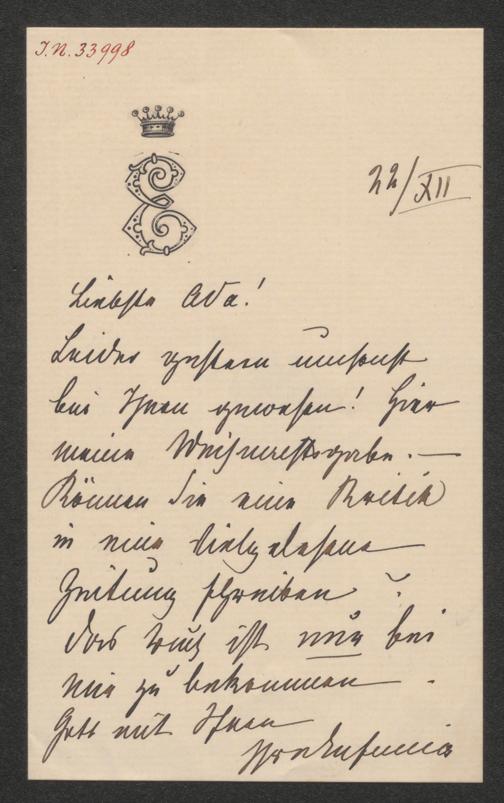 I.N. 33998
E
22/XII
Liebste Ada!
Leider gestern umsonst
bei Ihnen gewesen! Hier
meine Weihnachtsgabe. —
Können Sie eine Kritik
in eine vielgelesene
Zeitung schreiben?
Das ist nur bei
mir zu bekommen.
Gott mit Ihnen